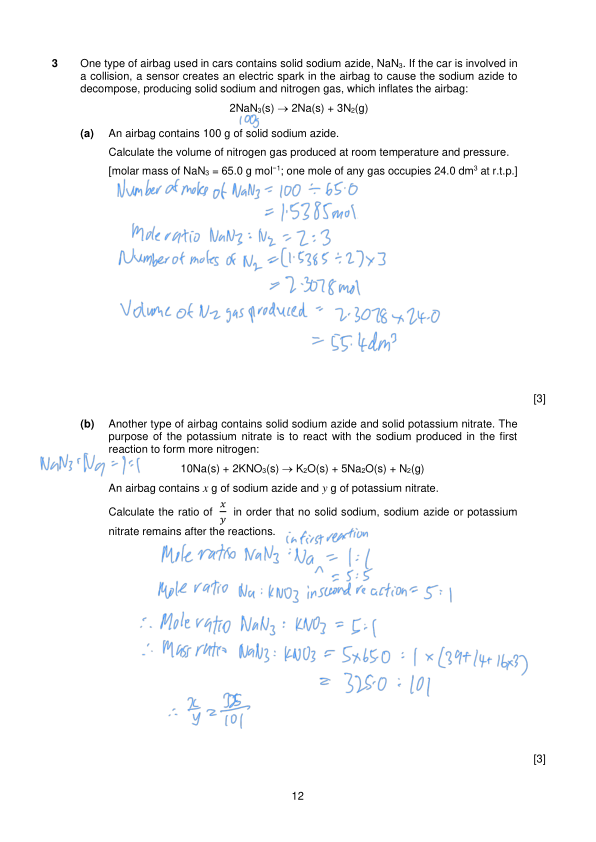 3 One type of airbag used in cars contains solid sodium azide, NaN₃. If the car is involved in
a collision, a sensor creates an electric spark in the airbag to cause the sodium azide to
decompose, producing solid sodium and nitrogen gas, which inflates the airbag:
2NaN₃(s) → 2Na(s) + 3N₂(g)
100g
(a) An airbag contains 100 g of solid sodium azide.
Calculate the volume of nitrogen gas produced at room temperature and pressure.
[molar mass of NaN₃ = 65.0 g mol⁻¹; one mole of any gas occupies 24.0 dm³ at r.t.p.]
Number of moles of NaN₃ = 100 ÷ 65.0
= 1.5385 mol
Mole ratio NaN₃ : N₂ = 2 : 3
Number of moles of N₂ = (1.5385 ÷ 2) × 3
= 2.3078 mol
Volume of N₂ gas produced = 2.3078 × 24.0
= 55.4 dm³
[3]
(b) Another type of airbag contains solid sodium azide and solid potassium nitrate. The
purpose of the potassium nitrate is to react with the sodium produced in the first
reaction to form more nitrogen:
NaN₃ : Na = 1 : 1
10Na(s) + 2KNO₃(s) → K₂O(s) + 5Na₂O(s) + N₂(g)
An airbag contains x g of sodium azide and y g of potassium nitrate.
Calculate the ratio of x/y in order that no solid sodium, sodium azide or potassium
nitrate remains after the reactions.
in first reaction
Mole ratio NaN₃ : Na ^ = 1 : 1
= 5 : 5
Mole ratio Na : KNO₃ in second reaction = 5 : 1
∴ Mole ratio NaN₃ : KNO₃ = 5 : 1
∴ Mass ratio NaN₃ : KNO₃ = 5×65.0 : 1 × (39+14+16×3)
= 325.0 : 101
∴ x/y = 325/101
[3]
12